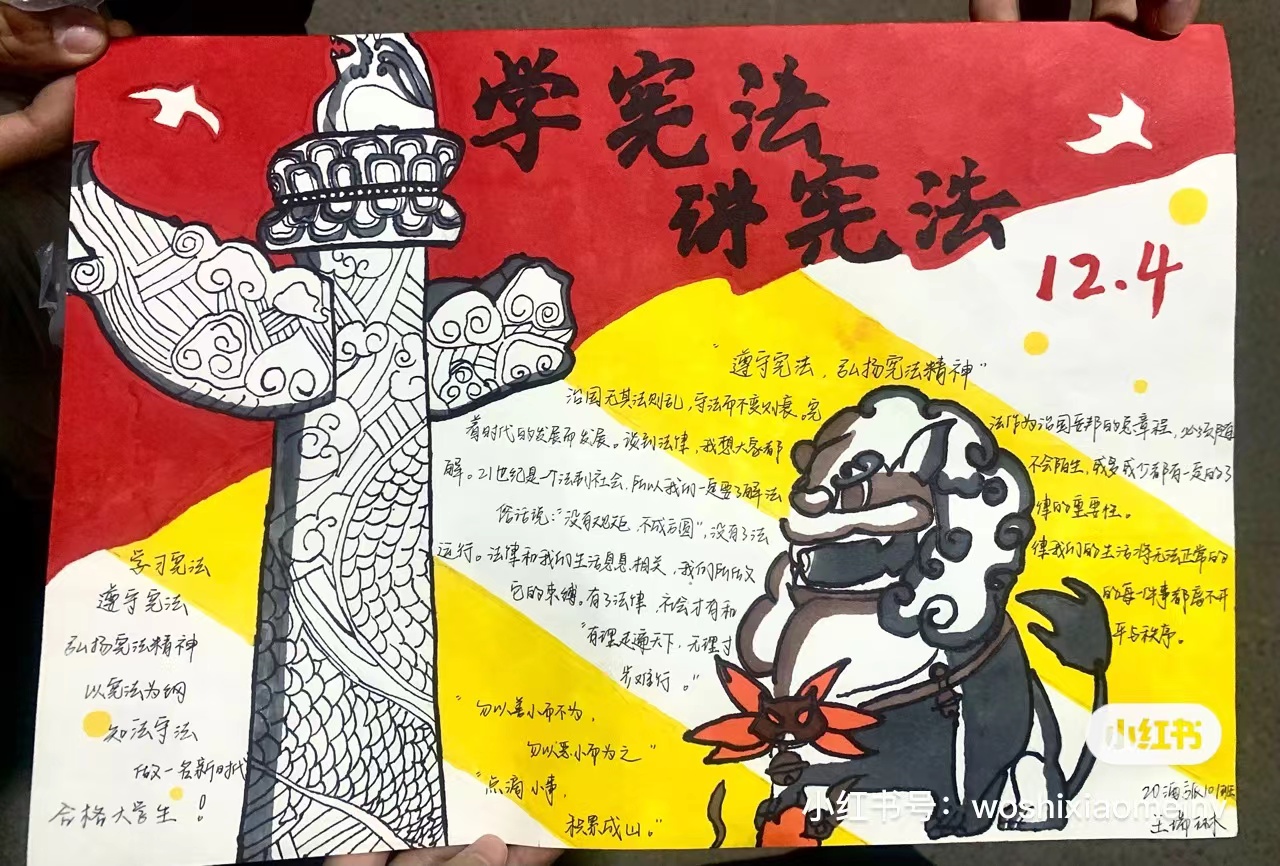 学宪法
讲宪法
12.4
“遵守宪法，弘扬宪法精神”
治国无其法则乱，守法而不变则衰。宪
法作为治国安邦的总章程，必须随
着时代的发展而发展。谈到法律，我想大家都
不会陌生，或多或少都有一定的了
解。21世纪是一个法制社会，所以我们一定要了解法
律的重要性。
俗话说：“没有规矩，不成方圆”，没有了法
律我们的生活将无法正常的
运行。法律和我们生活息息相关，我们所做
的每一件事都离不开
它的束缚。有了法律，社会才有和
平与秩序。
“有理走遍天下，无理寸
步难行。”
“勿以善小而不为，
勿以恶小而为之”
“点滴小事，
积累成山。”
学习宪法
遵守宪法
弘扬宪法精神
以宪法为纲
知法守法
做一名新时代
合格大学生！
小红书
小红书号：woshixiaomeihv